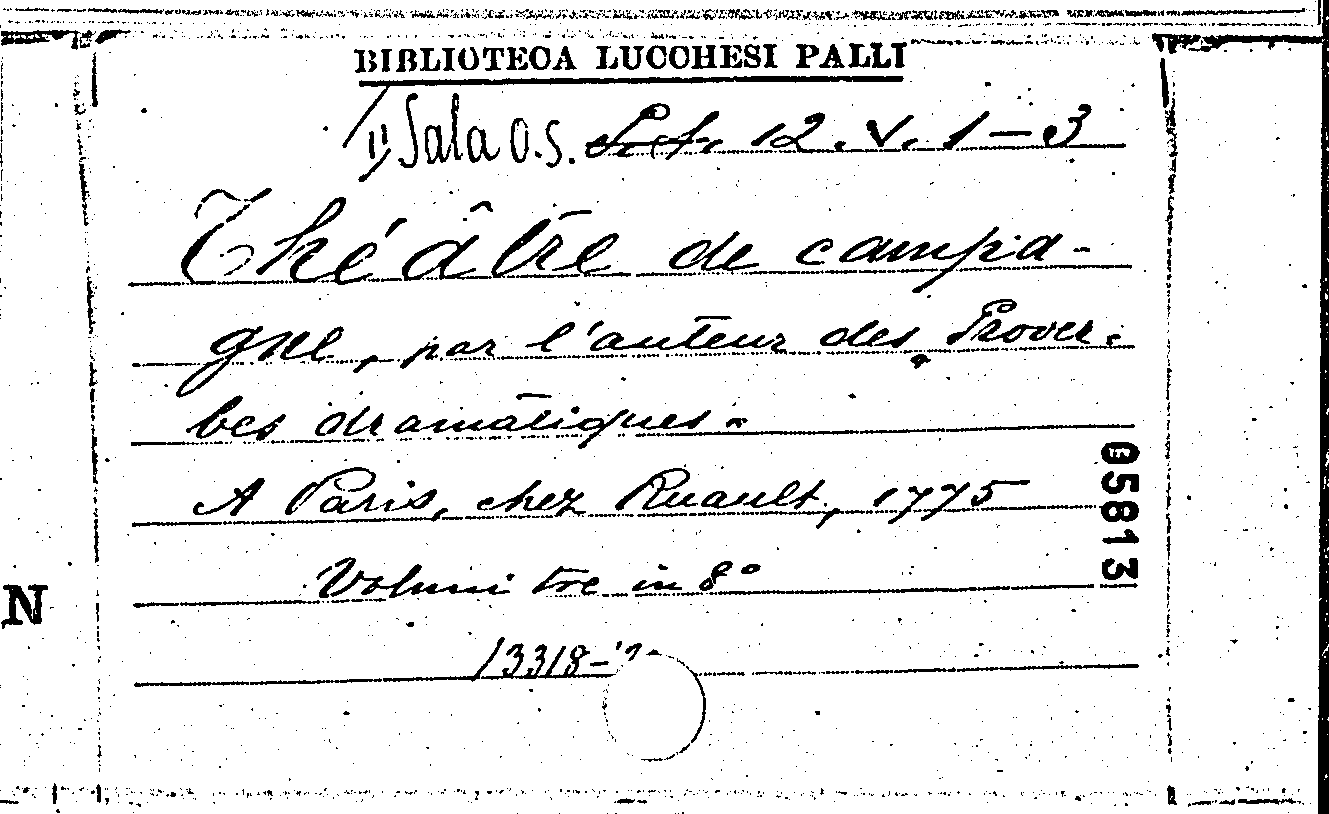 BIBLIOTECA LUCCHESI PALLI
II Sala O.S. Sct. 12. V. 1-3
Théâtre de campa-
gne, par l'auteur des Prover-
bes dramatiques.
A Paris, chez Ruault, 1775
Volumi tre in 8°
13318-
05813
N